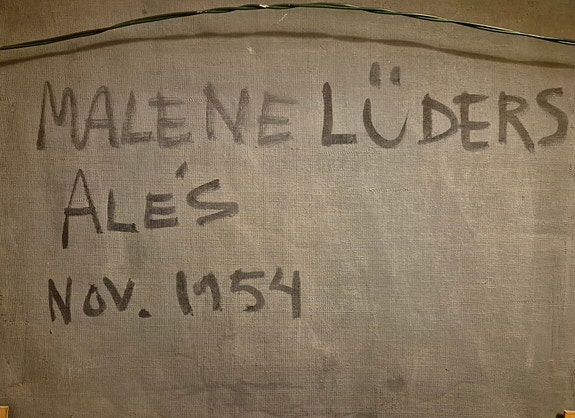 MALENE LÜDERS
ALE'S
NOV. 1954